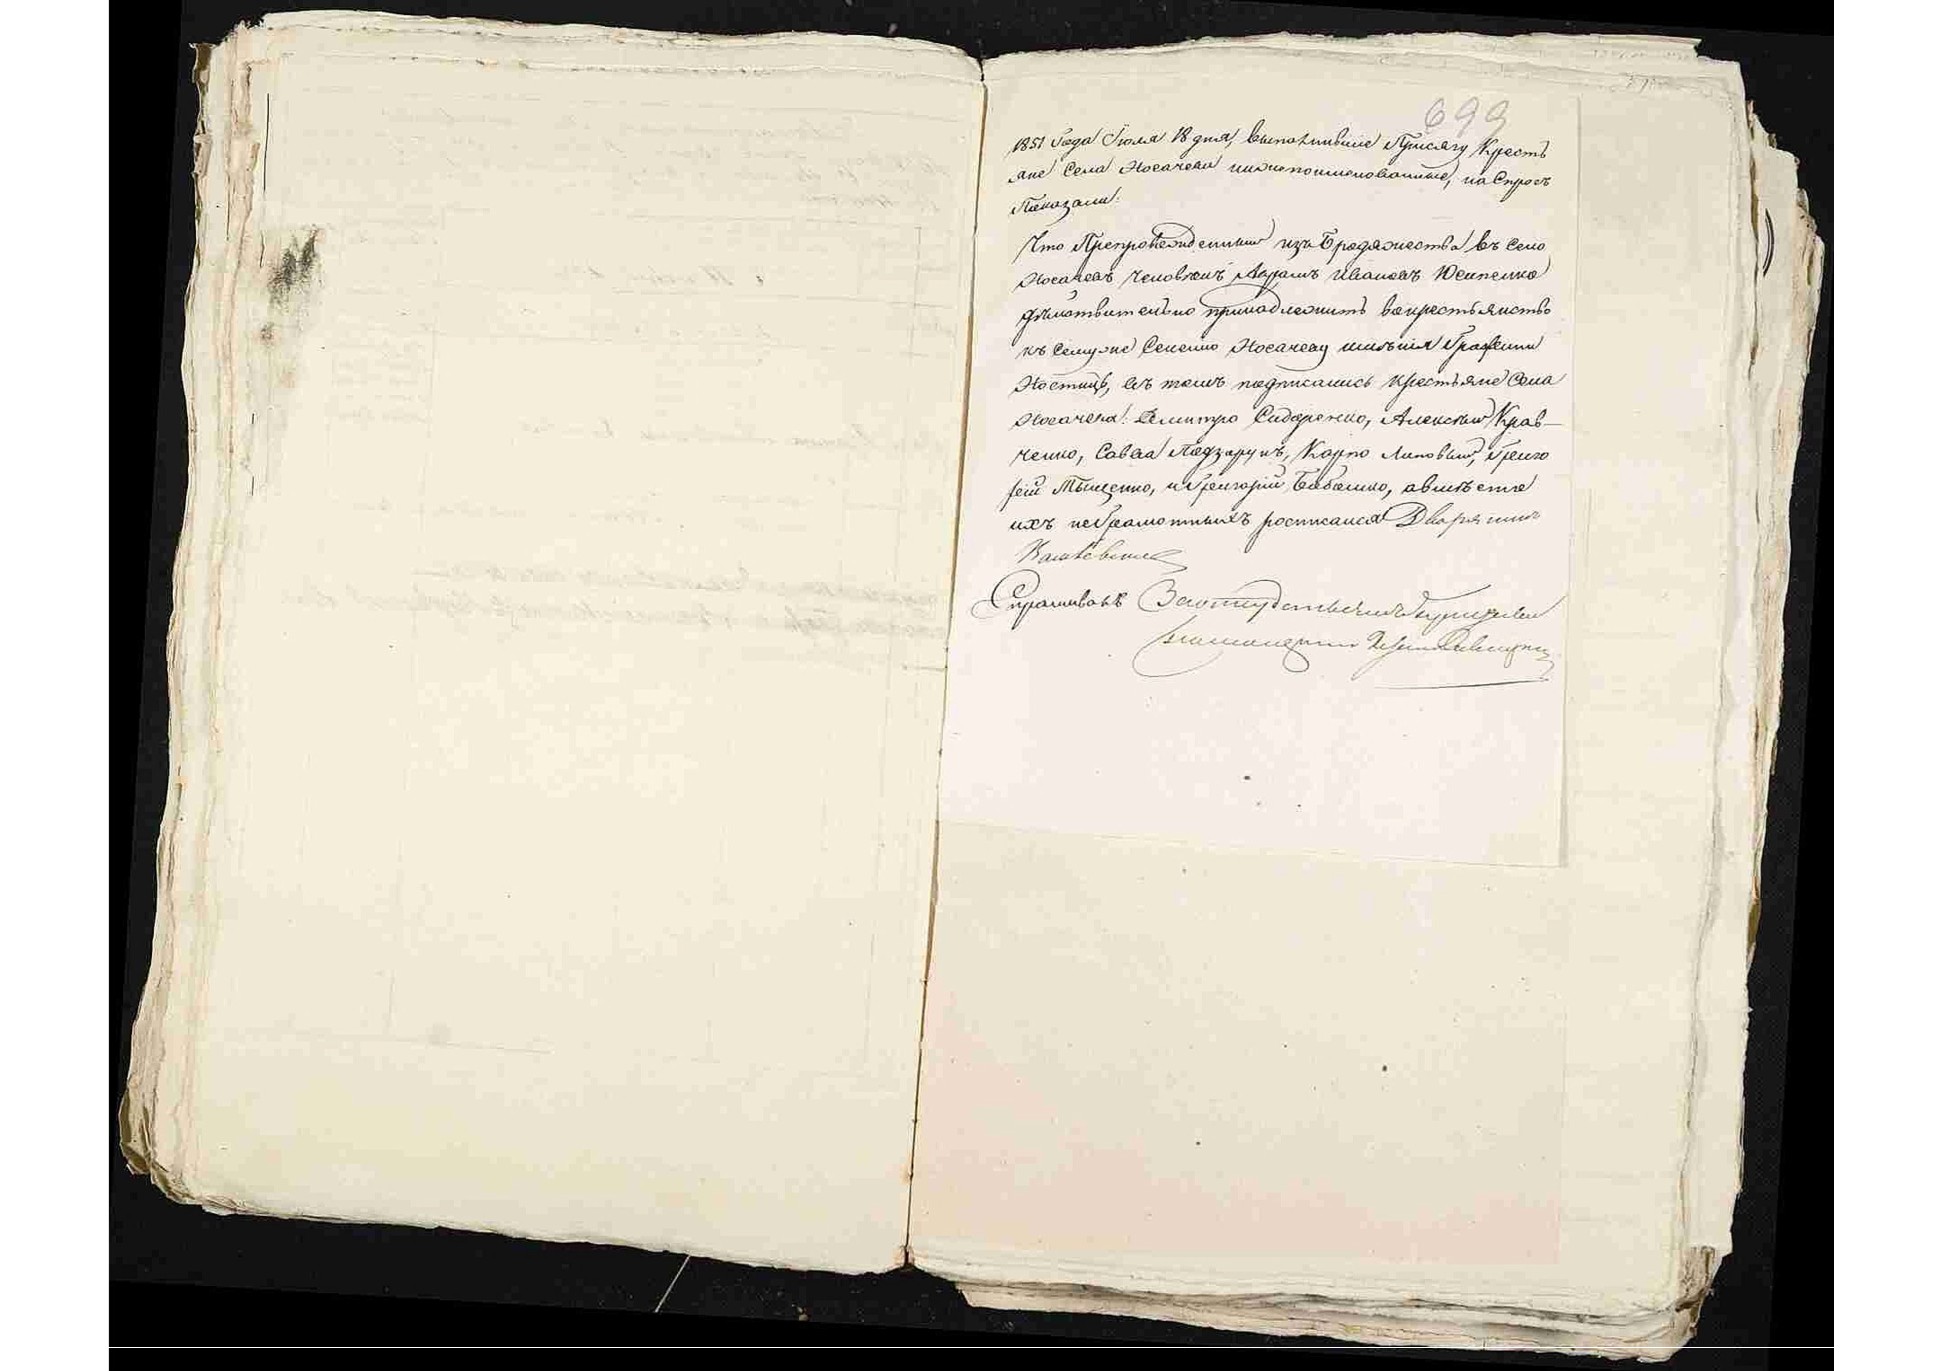 699
1851 Года Іюля 18 дня, выполнившіе Присягу Кресть
яне Села Носачева нижепоименованные, на Спросъ
Показали:
Что Препровожденный изъ Бродяжества въ Село
Носачевъ человѣкъ Аврамъ Ивановъ Юсипенко
дѣйствительно принадлежитъ въ крестьянство
къ Семуже Селенію Носачеву имѣнія Графини
Ностицъ, въ томъ подписались крестьяне Села
Носачева: Димитро Сидоренко, Алексѣй Крав-
ченко, Савва Подзарунъ, Карпо Липовый, Григо
рій Мыценко, и Григорій Бабенко, а вмѣсто
ихъ неграмотныхъ росписался Дворянинъ
Спрашивалъ